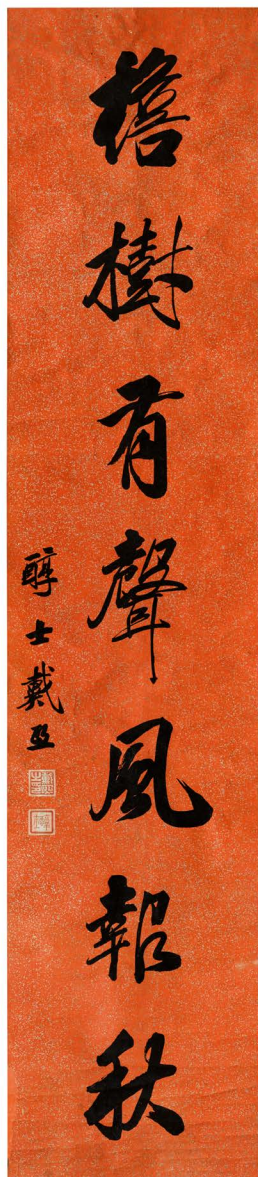 檐樹有聲風報秋
醇士戴熙